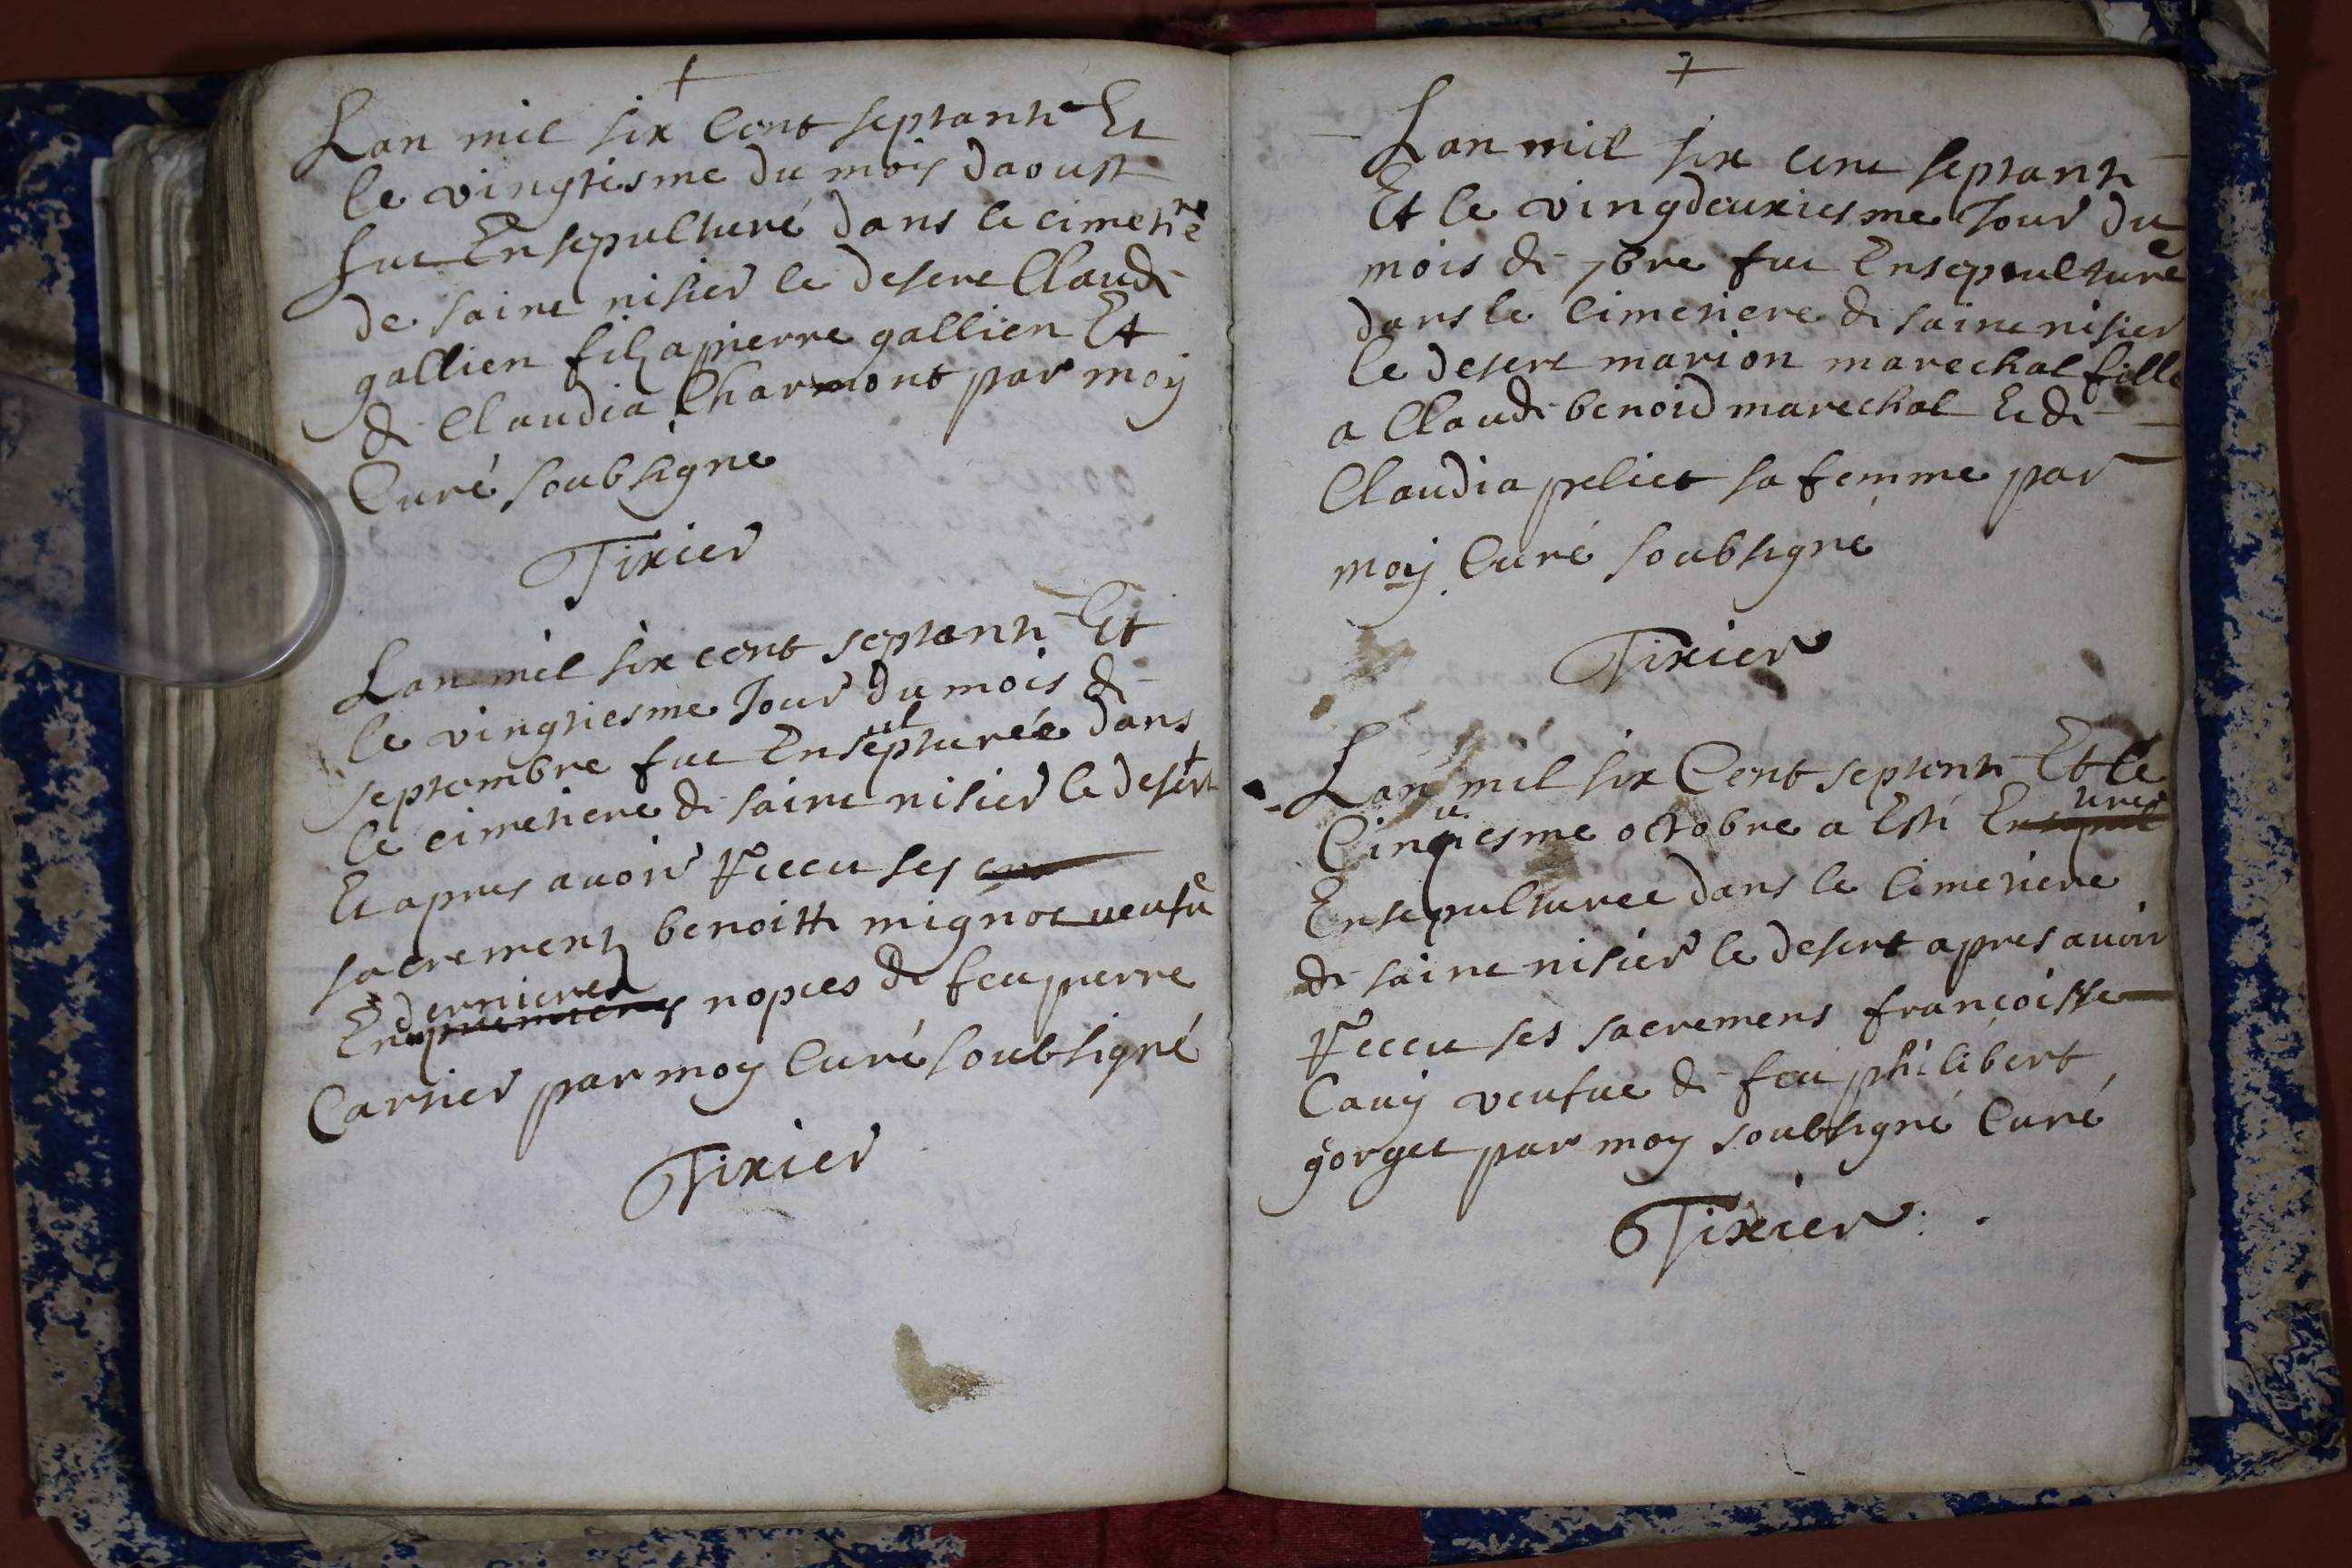 +
Lan mil six Cent septante Et
le vingtiesme du mois daoust
fut Ensepulturé dans le cimetiere
de saint nisier le desert Claude
gallien filz a pierre gallien Et
de Claudia Charmont par moy
Curé soubsigne
Tixier
Lan mil six cent septante Et
le vingtiesme Jour du mois de
septembre fut Ensepulturée dans
le cimetiere de saint nisier le desert
Et apres avoir Receu ses
sacrementz benoitte mignot veufue
En dernieres premieres nopces de feu pierre
Carrier par moy Curé soubsigné
Tixier
+
Lan mil six cent septante
Et le vingdeuxiesme Jour du
mois de 7bre fut Ensepulturée
dans le Cimetiere de saint nisier
le desert marion marechal fille
a Claude benoid marechal Et de
Claudia peliet sa femme par
moy Curé soubsigné
Tixier
Lan mil six Cent septente Et le
Cinquiesme octobre a Esté
Ensepulturee dans le Cimetiere
de saint nisier le desert apres avoir
Receu ses sacremens françoisse
Cauy veufue de feu philibert
gorget par moy soubsigné Curé
Tixier